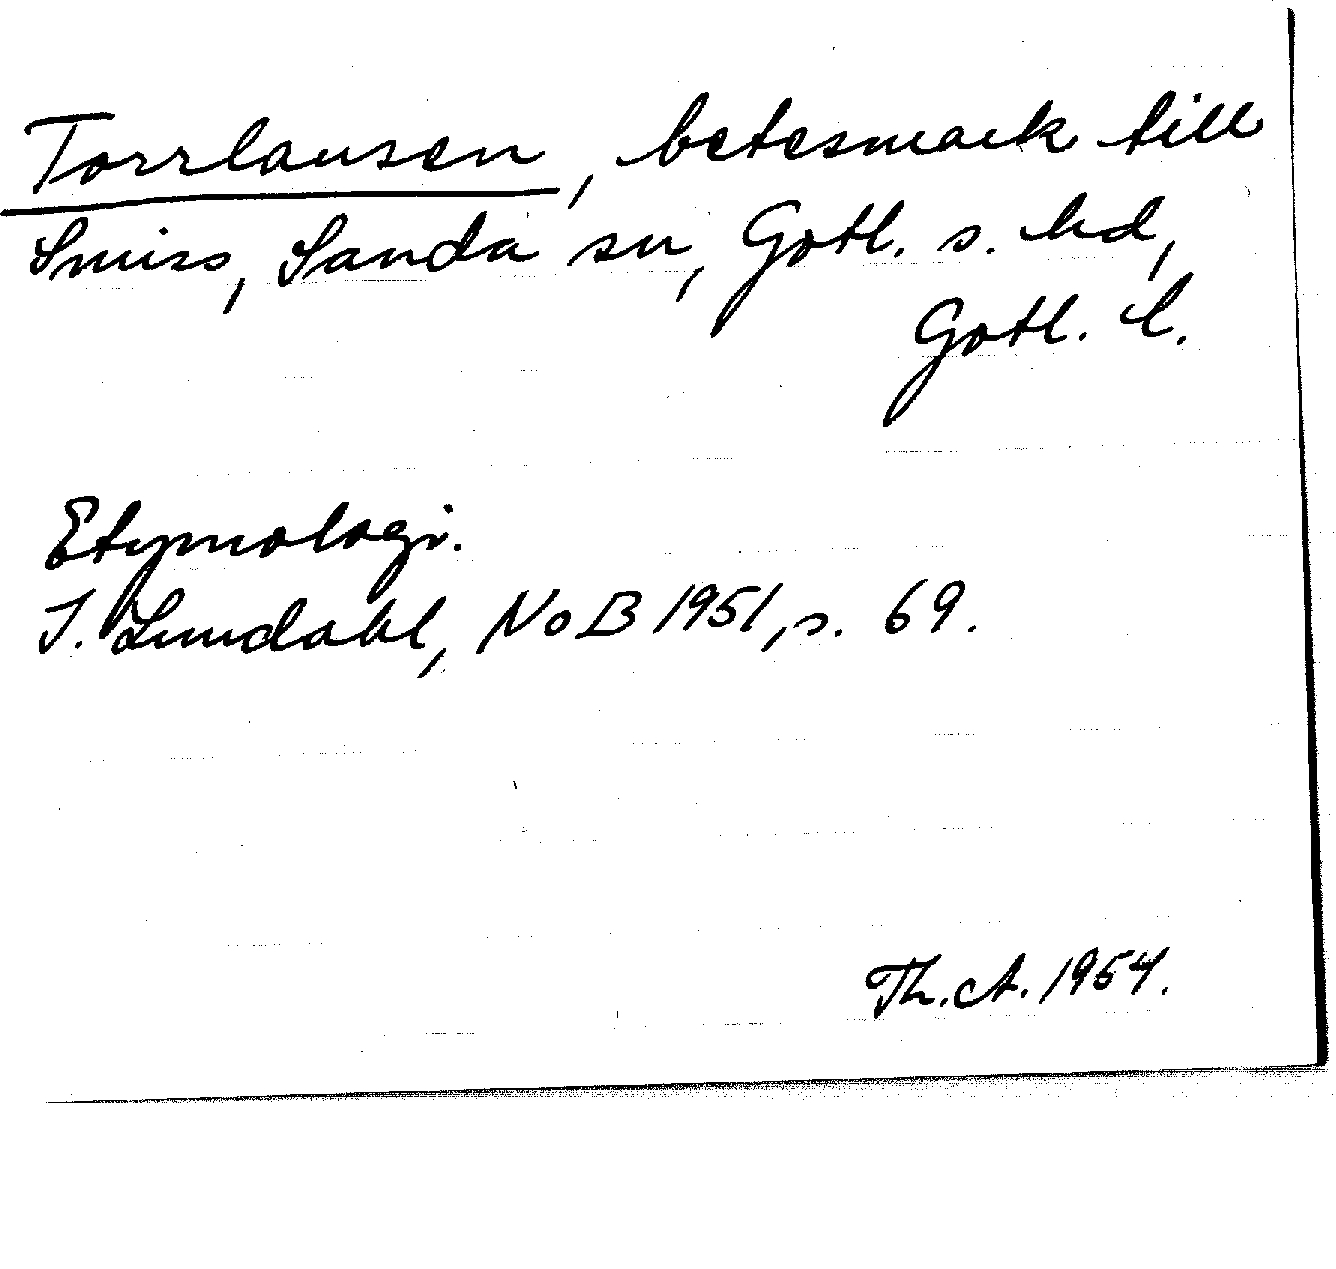 Torrlausen, betesmark till
Smiss, Sanda sn, Gotl. s. hd,
Gotl. l.
Etymologi.
I. Lundahl, NoB 1951, s. 69.
Th. A. 1954.